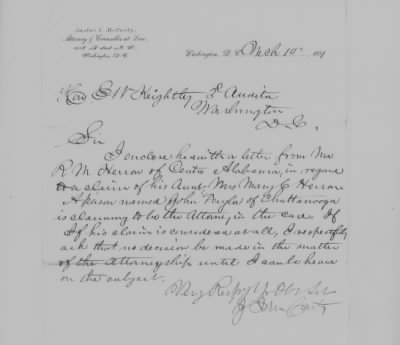 Justus I. McCarty,
Attorney & Counsellor at Law,
Washington, D.C.
Washington, D. C. Mch 19" 1891
Hon E W Keightley 3" Auditor
Washington
D. C.
Sir
I enclose herewith a letter from Mr
R. M. Herron of Centre Alabama, in regard
to a claim of his Aunt Mrs Mary C Herron
A person named John of Chattanooga
is claiming to be the Attorney in the case. If
If his claim is considered at all, I respectfully
ask that no decision be made in the matter
of the Attorneyship until I can be heard
on the subject.
Very Respy Yr Obt Svt